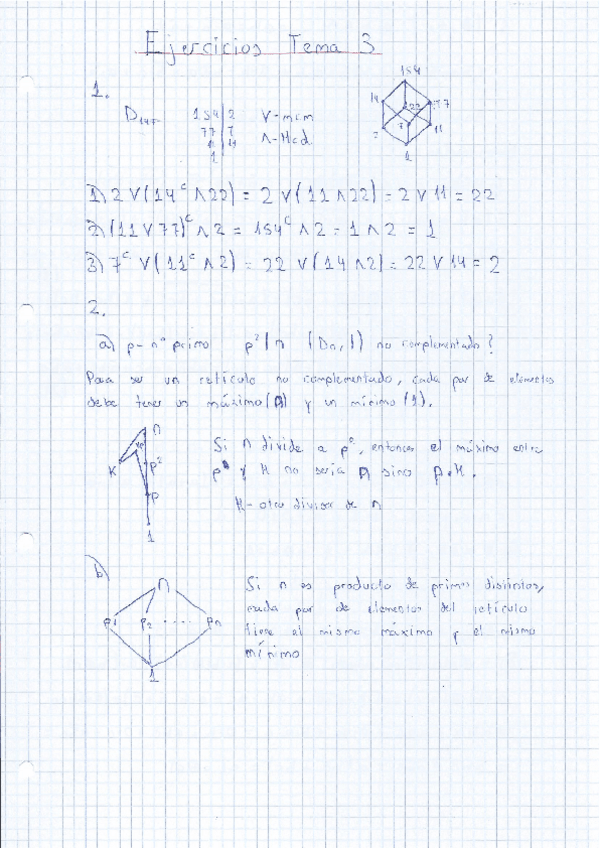 Ejercicios Tema 3
1.
154 2 V-mcm
77 7 Λ-Mcd
11 11
1
154
14 22 77
2 7 11
1
1) 2 V (14ᶜ Λ 22) = 2 V (11 Λ 22) = 2 V 11 = 22
2) (11 V 77)ᶜ Λ 2 = 154ᶜ Λ 2 = 1 Λ 2 = 1
3) 7ᶜ V (11ᶜ Λ 2) = 22 V (14 Λ 2) = 22 V 14 = 2
2.
a) p- nº primo p² | n (Dn, |) no complementado?
Para ser un retículo no complementado, cada par de elementos
debe tener un máximo (n) y un mínimo (1).
n
K p²
p
1
Si n divide a p², entonces el máximo entre
p y K no sería n sino p·K.
K- otro divisor de n
b)
n
p1 p2 ..... pn
1
Si n es producto de primos distintos,
cada par de elementos del retículo
tiene el mismo máximo y el mismo
mínimo